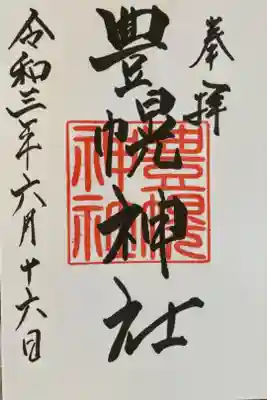 奉拝
豊幌神社
令和三年六月十六日
豊幌
神社